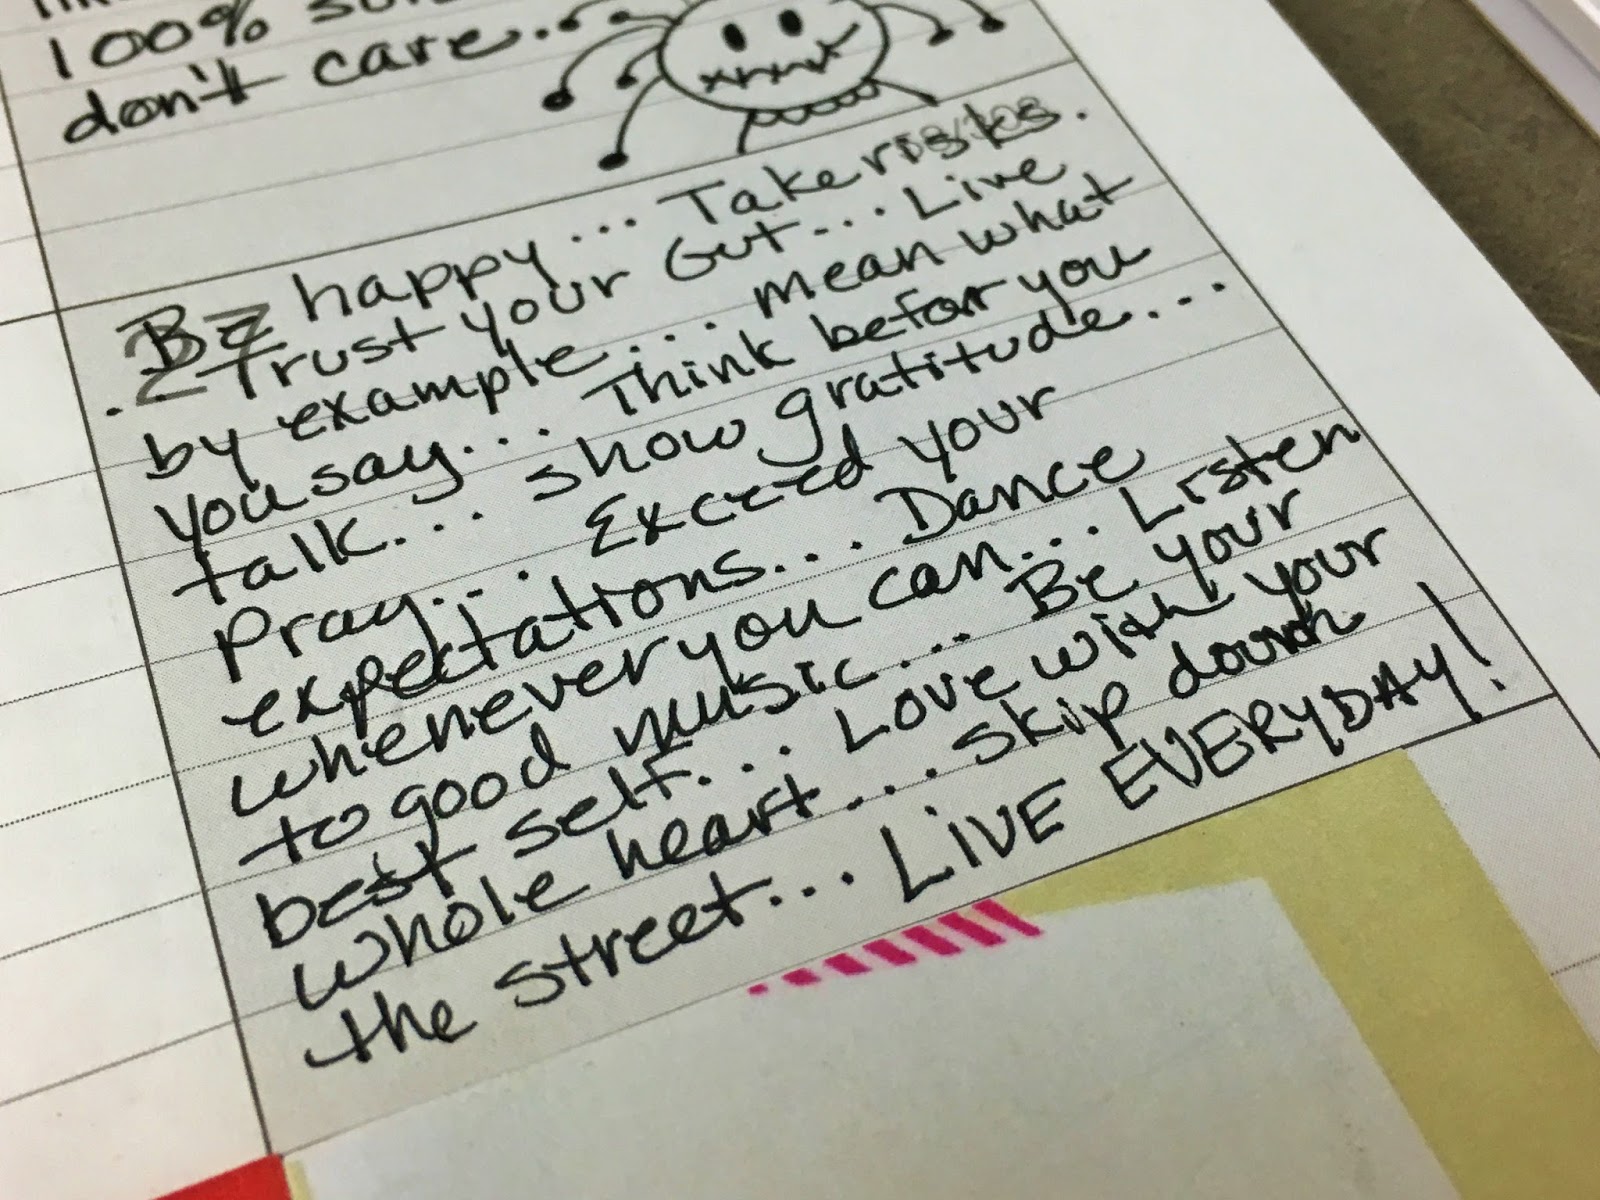 100%
don't care..
Be happy... Take risks.
.. Trust your Gut... Live
by example... mean what
you say... Think before you
talk... show gratitude...
Pray... Exceed your
expectations... Dance
whenever you can... Listen
to good music... Be your
best self... Love with your
whole heart... Skip down
the street... LIVE EVERYDAY!